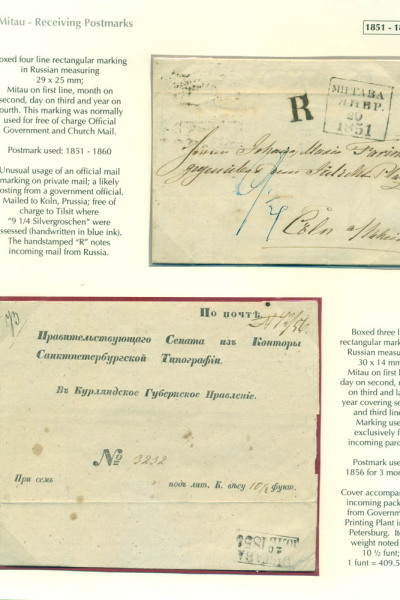 Mitau - Receiving Postmarks
1851 - 18
oxed four line rectangular marking
in Russian measuring
29 x 25 mm;
Mitau on first line, month on
second, day on third and year on
fourth. This marking was normally
used for free of charge Official
Government and Church Mail.
Postmark used: 1851 - 1860
Unusual usage of an official mail
marking on private mail; a likely
osting from a government official.
Mailed to Koln, Prussia; free of
charge to Tilsit where
"9 1/4 Silvergroschen" were
ssessed (handwritten in blue ink).
The handstamped "R" notes
incoming mail from Russia.
R
МИТАВА
ЯНВР.
20
1851
Cöln
По почтѣ.
Правительствующаго Сената изъ Конторы
Санктпетербургской Типографіи.
Въ Курляндское Губернское Правленіе.
№ 3232
При семъ подъ лит. К. вѣсу 10½ фунт.
МИТАВА
20
1856
Boxed three l
rectangular mark
Russian measu
30 x 14 mm
Mitau on first l
day on second,
on third and la
year covering se
and third line
Marking use
exclusively f
incoming parc
Postmark use
1856 for 3 mon
Cover accompa
incoming pack
from Governm
Printing Plant in
Petersburg. It
weight noted
10 ½ funt;
1 funt = 409.5